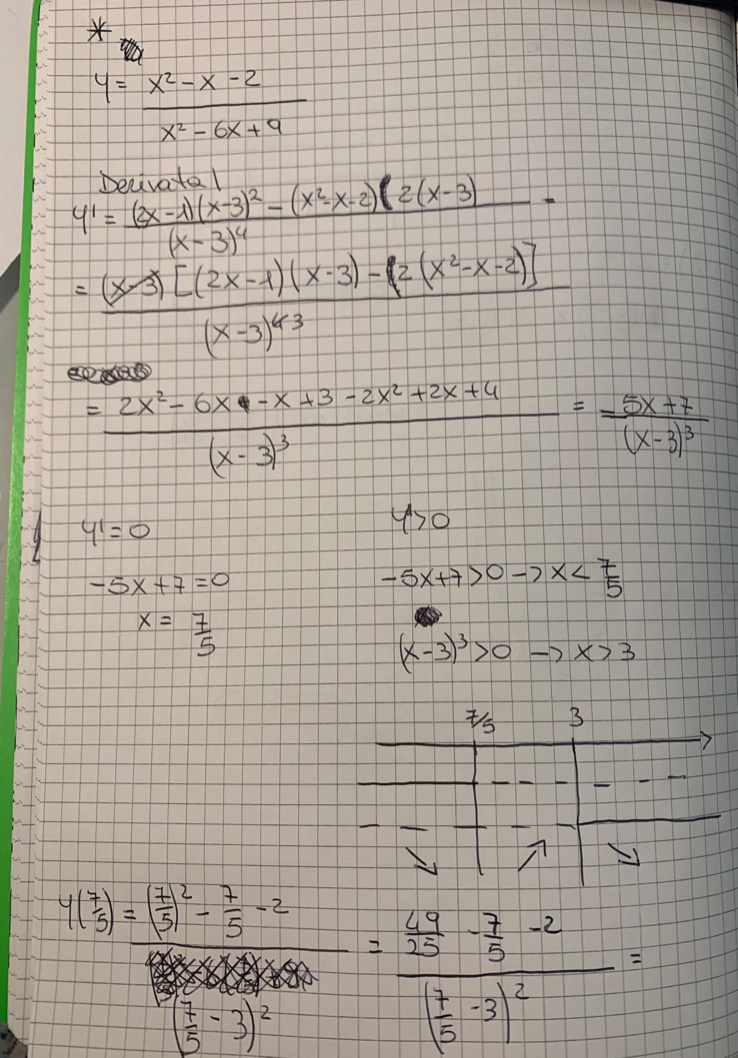 *
y = x² - x - 2 / x² - 6x + 9
Derivata 1
y' = (2x - 1)(x - 3)² - (x² - x - 2)(2(x - 3) / (x - 3)⁴ =
= (x - 3) [(2x - 1)(x - 3) - (2(x² - x - 2)] / (x - 3)⁴ ³
= 2x² - 6x - x + 3 - 2x² + 2x + 4 / (x - 3)³ = -5x + 7 / (x - 3)³
y' = 0 y' > 0
-5x + 7 = 0 -5x + 7 > 0 -> x < 7/5
x = 7/5
(x - 3)³ > 0 -> x > 3
7/5 3
y(7/5) = (7/5)² - 7/5 - 2 / (7/5 - 3)² = 49/25 - 7/5 - 2 / (7/5 - 3)² =